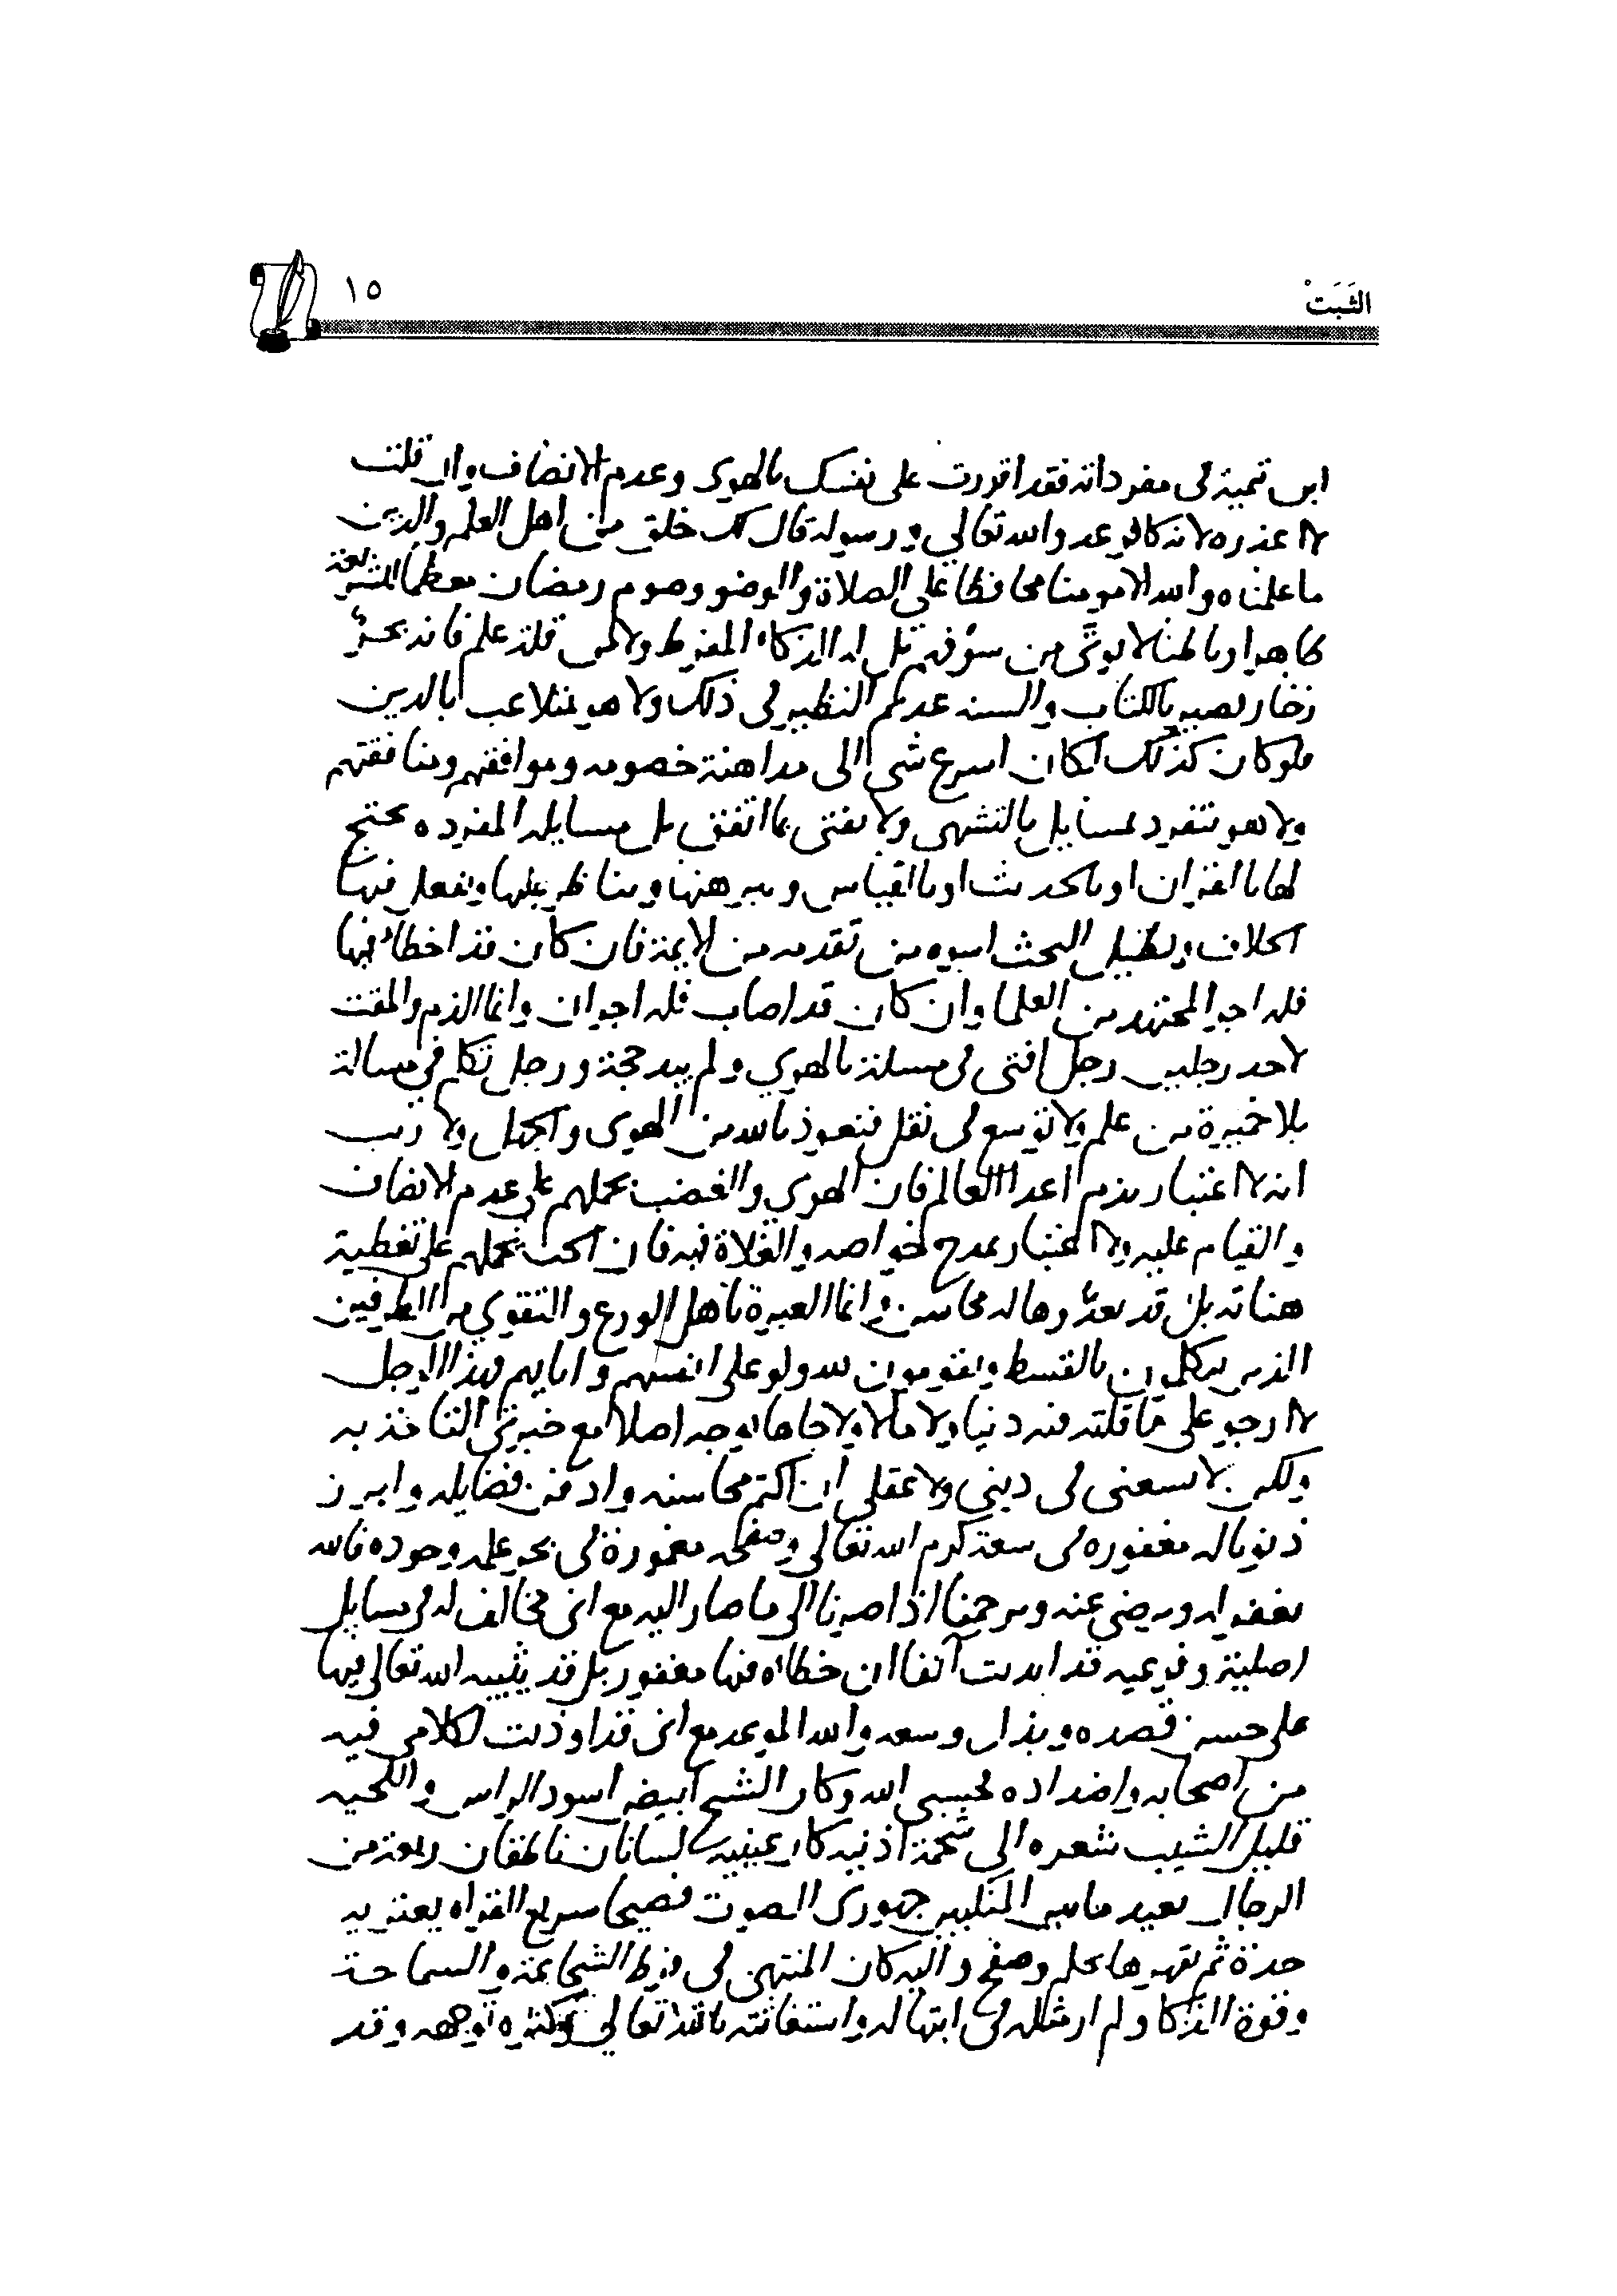 الثَبَتْ
١٥
ابن تيمية في مفرداته فقد اقررت على نفسك بالهوى وعدم الانصاف وان قلت
لا اعذره لانه كافر عدو الله تعالي ورسوله قال لك خلق من اهل العلم والدين
ما علمناه والله الا مومنا محافظا على الصلاة والوضو وصوم رمضان معظما للشريعة
ظاهرا وباطنا لا يوتى من سوء فهم بل له الذكاء المفرط ولا من قلة علم فانه بحر
زخار بصير بالكتاب والسنه عديم النظير في ذلك ولا هو بمتلاعب بالدين
فلو كان كذلك لكان اسرع شي الى مداهنة خصومه وموافقتهم ومنافقتهم
ولا هو يتفرد بمسايل بالتشهي ولا يفتي بما اتفق بل مسايله المفرده يحتج
لها بالقران او بالحديث او بالقياس ويبرهنها ويناظر عليها وينقل فيها
الخلاف ويطيل البحث اسوه من تقدمه من الايمة فان كان قد اخطا فيها
فله اجر المجتهد من العلما وان كان قد اصاب فله اجران وانما الذم والمقت
لاحد رجلين رجل افتى في مسلة بالهوي ولم يبد حجة ورجل تكلم في مسالة
بلا خميرة من علم ولا توسع في نقل فنعوذ بالله من الهوى والجهل ولا ريب
انه لا اعتبار بذم اعدا العالم فان الهوى والغضب يحملهم على عدم الانصاف
والقيام عليه ولا اعتبار بمدح خواصه والغلاة فيه فان الحب يحملهم على تغطية
هناته بل قد يعدوها له محاسن وانما العبرة باهل الورع والتقوي من الطرفين
الذين يتكلمون بالقسط ويقومون لله ولو على انفسهم وابايهم فهذا الرجل
لا ارجو على ما قلته فيه دنيا ولا مالا ولا جاها بوجه اصلا مع خبرتي التامة به
ولكن لا يسعني في ديني ولا عقلي ان اكتم محاسنه وادفن فضايله وابرز
ذنوبا له مغفوره في سعة كرم الله تعالي وصفحه مغمورة في بحر علمه وجوده فالله
يغفر له ويرضي عنه ويرحمنا اذا صرنا الى ما صار اليه مع اني مخالف له في مسايل
اصلية وفرعيه قد ابديت آنفا ان خطاه فيها مغفور بل قد يثيبه الله تعالى فيها
على حسن قصده وبذل وسعه والله الموعد مع اني قد اوذيت لكلامي فيه
من اصحابه واضداده فحسبي الله وكان الشيخ ابيض اسود الراس واللحيه
قليل الشيب شعره الى شحمة اذنيه كان عينيه لسانان ناطقان ربعة من
الرجال بعيد ما بين المنكبين جهوري الصوت فصيحا سريع القراه يعتريه
حدة ثم يقهرها بحلم وصفح واليه كان المنتهى في فرط الشجاعة والسماحة
وقوة الذكا ولم ار مثله في ابتهاله واستغاثته بالله تعالي وكثره توجهه وقد